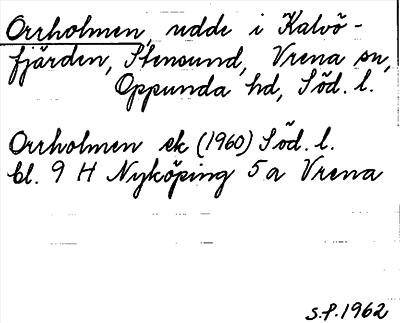 Orrholmen, udde i Kalvö-
fjärden, Stensund, Vrena sn,
Oppunda hd, Söd. l.
Orrholmen ek (1960) Söd. l.
bl. 9 H Nyköping 5 a Vrena
S.P. 1962